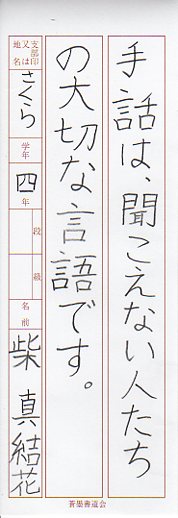 手話は、聞こえない人たち
の大切な言語です。
支部印
又は
地名
さくら
学年
四年
段
級
名前
柴真結花
蒼墨書道会